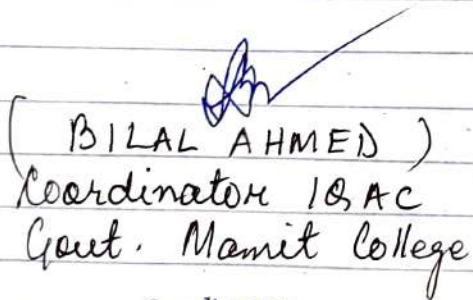 ( BILAL AHMED )
Coordinator IQAC
Govt. Mamit College